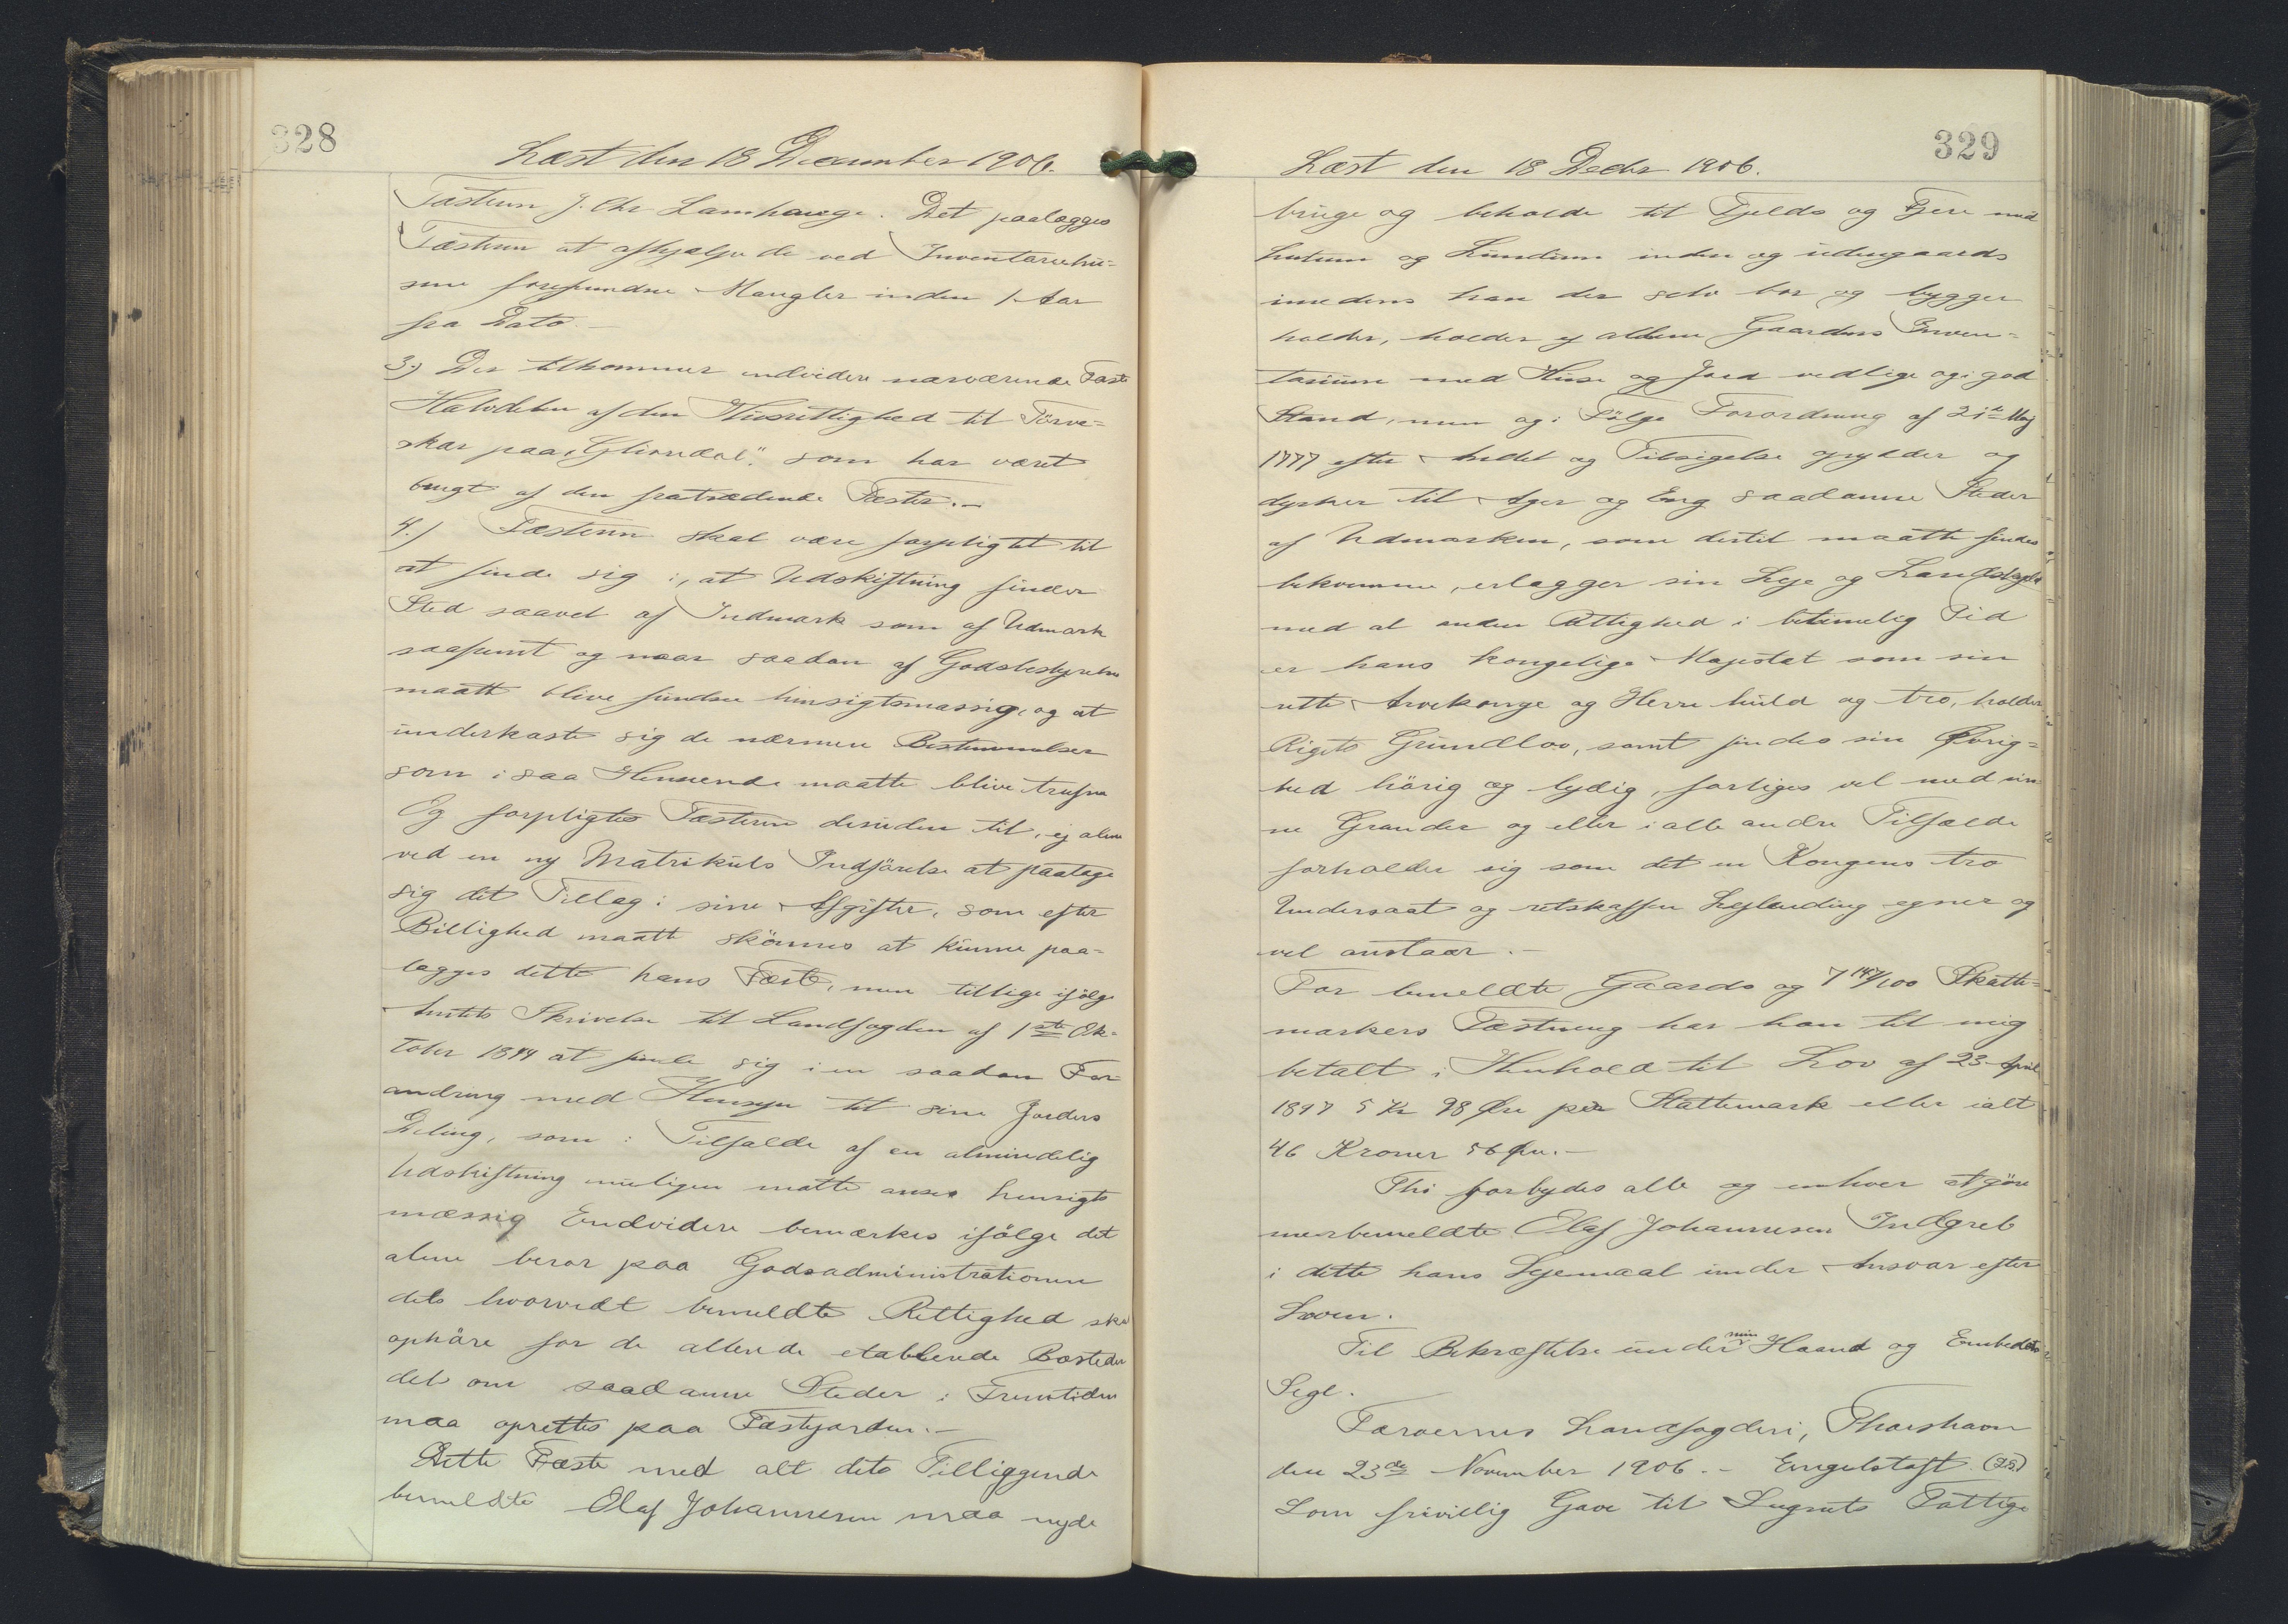 328
Læst den 18 December 1906.
Fæsteren J. Chr Lamhauge. Det paalægges
Fæsteren at afhjælpe de ved Inventariehu-
sene forefundne Mangler inden 1 Aar
fra Dato.-
3.) Der tilkommer endvidere nærværende Fæste
Halvdelen af den Husrettighed til Törve-
skær paa som har været
brugt af den fratrædende Fæster.-
4.) Fæsteren skal være forpligtet til
at finde sig i, at Udskiftning finder
Sted saavel af Indmark som af Udmark
saafremt og naar saadan af Godsbestyrelsen
maatte blive funden hensigtsmæssig, og at
underkaste sig de nærmere Bestemmelser
som i saa Henseende maatte blive trufne
Og forpligtes Fæsteren desuden til, ej alene
ved en ny Matrikuls Indförelse at paatage
sig det Tillæg i sine Afgifter, som efter
Billighed maatte skönnes at kunne paa-
lægges dette hans Fæste, men tillige ifölge
Amtets Skrivelse til Landfogden af 1ste Ok-
tober 1844 at finde sig i en saadan For
andring med Hensyn til sine Jorders
Deling, som i Tilfælde af en almindelig
Udskiftning muligen matte anses hensigts
mæssig Endvidere bemærkes ifölge det
alene beror paa Godsadministrationen
dels hvorvidt bemeldte Rettighed skal
ophöre for de allerede etablerede Bosteder
dels om saadanne Steder i Fremtiden
maa oprettes paa Fæstejorden.-
Dette Fæste med alt dets Tilliggende
bemeldte Olaf Johannesen maa nyde
329
Læst den 18 Decbr 1906.
bruge og beholde til Fjelds og Fjere med
Lutum og Lundum inden og udengaards
imedens han der selv bor og bygger
holder, holder ej allene Gaardens Inven-
tarium med Huse og Jord vedlige og i god
Stand, men og i Fölge Forordning af 21de Maj
1777 efter Andel og Tilsigelse oprydder og
dyrker til Ager og Eng saadanne Steder
af Udmarken, som dertil maatte findes
bekvemme, erlægger sin Leje og Landskyld
med al anden Rettighed i betimelig Tid
er hans kongelige Majestæt som sin
rette Arvekonge og Herre huld og tro, holder
Rigets Grundlov, samt findes sin Øvrig-
hed hörig og lydig, forliges vel med sin
ne Grander og eller i alle andre Tilfælde
forholder sig som det en Kongens tro
Undersaat og retskaffen Lejlending egner og
vel anstaar.-
For bemeldte Gaards og 7 147/200 Skatte-
markers Fæstning har han til mig
betalt i Henhold til Lov af 23. April
1897 5 Kr 98 Øre per Skattemark eller ialt
46 Kroner 56 Øre.-
Thi forbydes alle og enhver at göre
merbemeldte Olaf Johannesen Indgreb
i dette hans Lejemaal under Ansvar efter
Loven.
Til Bekræftelse under min Haand og Embeds
Segl.
Færöernes Landfogderi, Thorshavn
den 23de November 1906.- Engelstoft. (LS)
Som frivillig Gave til Sognets Fattige